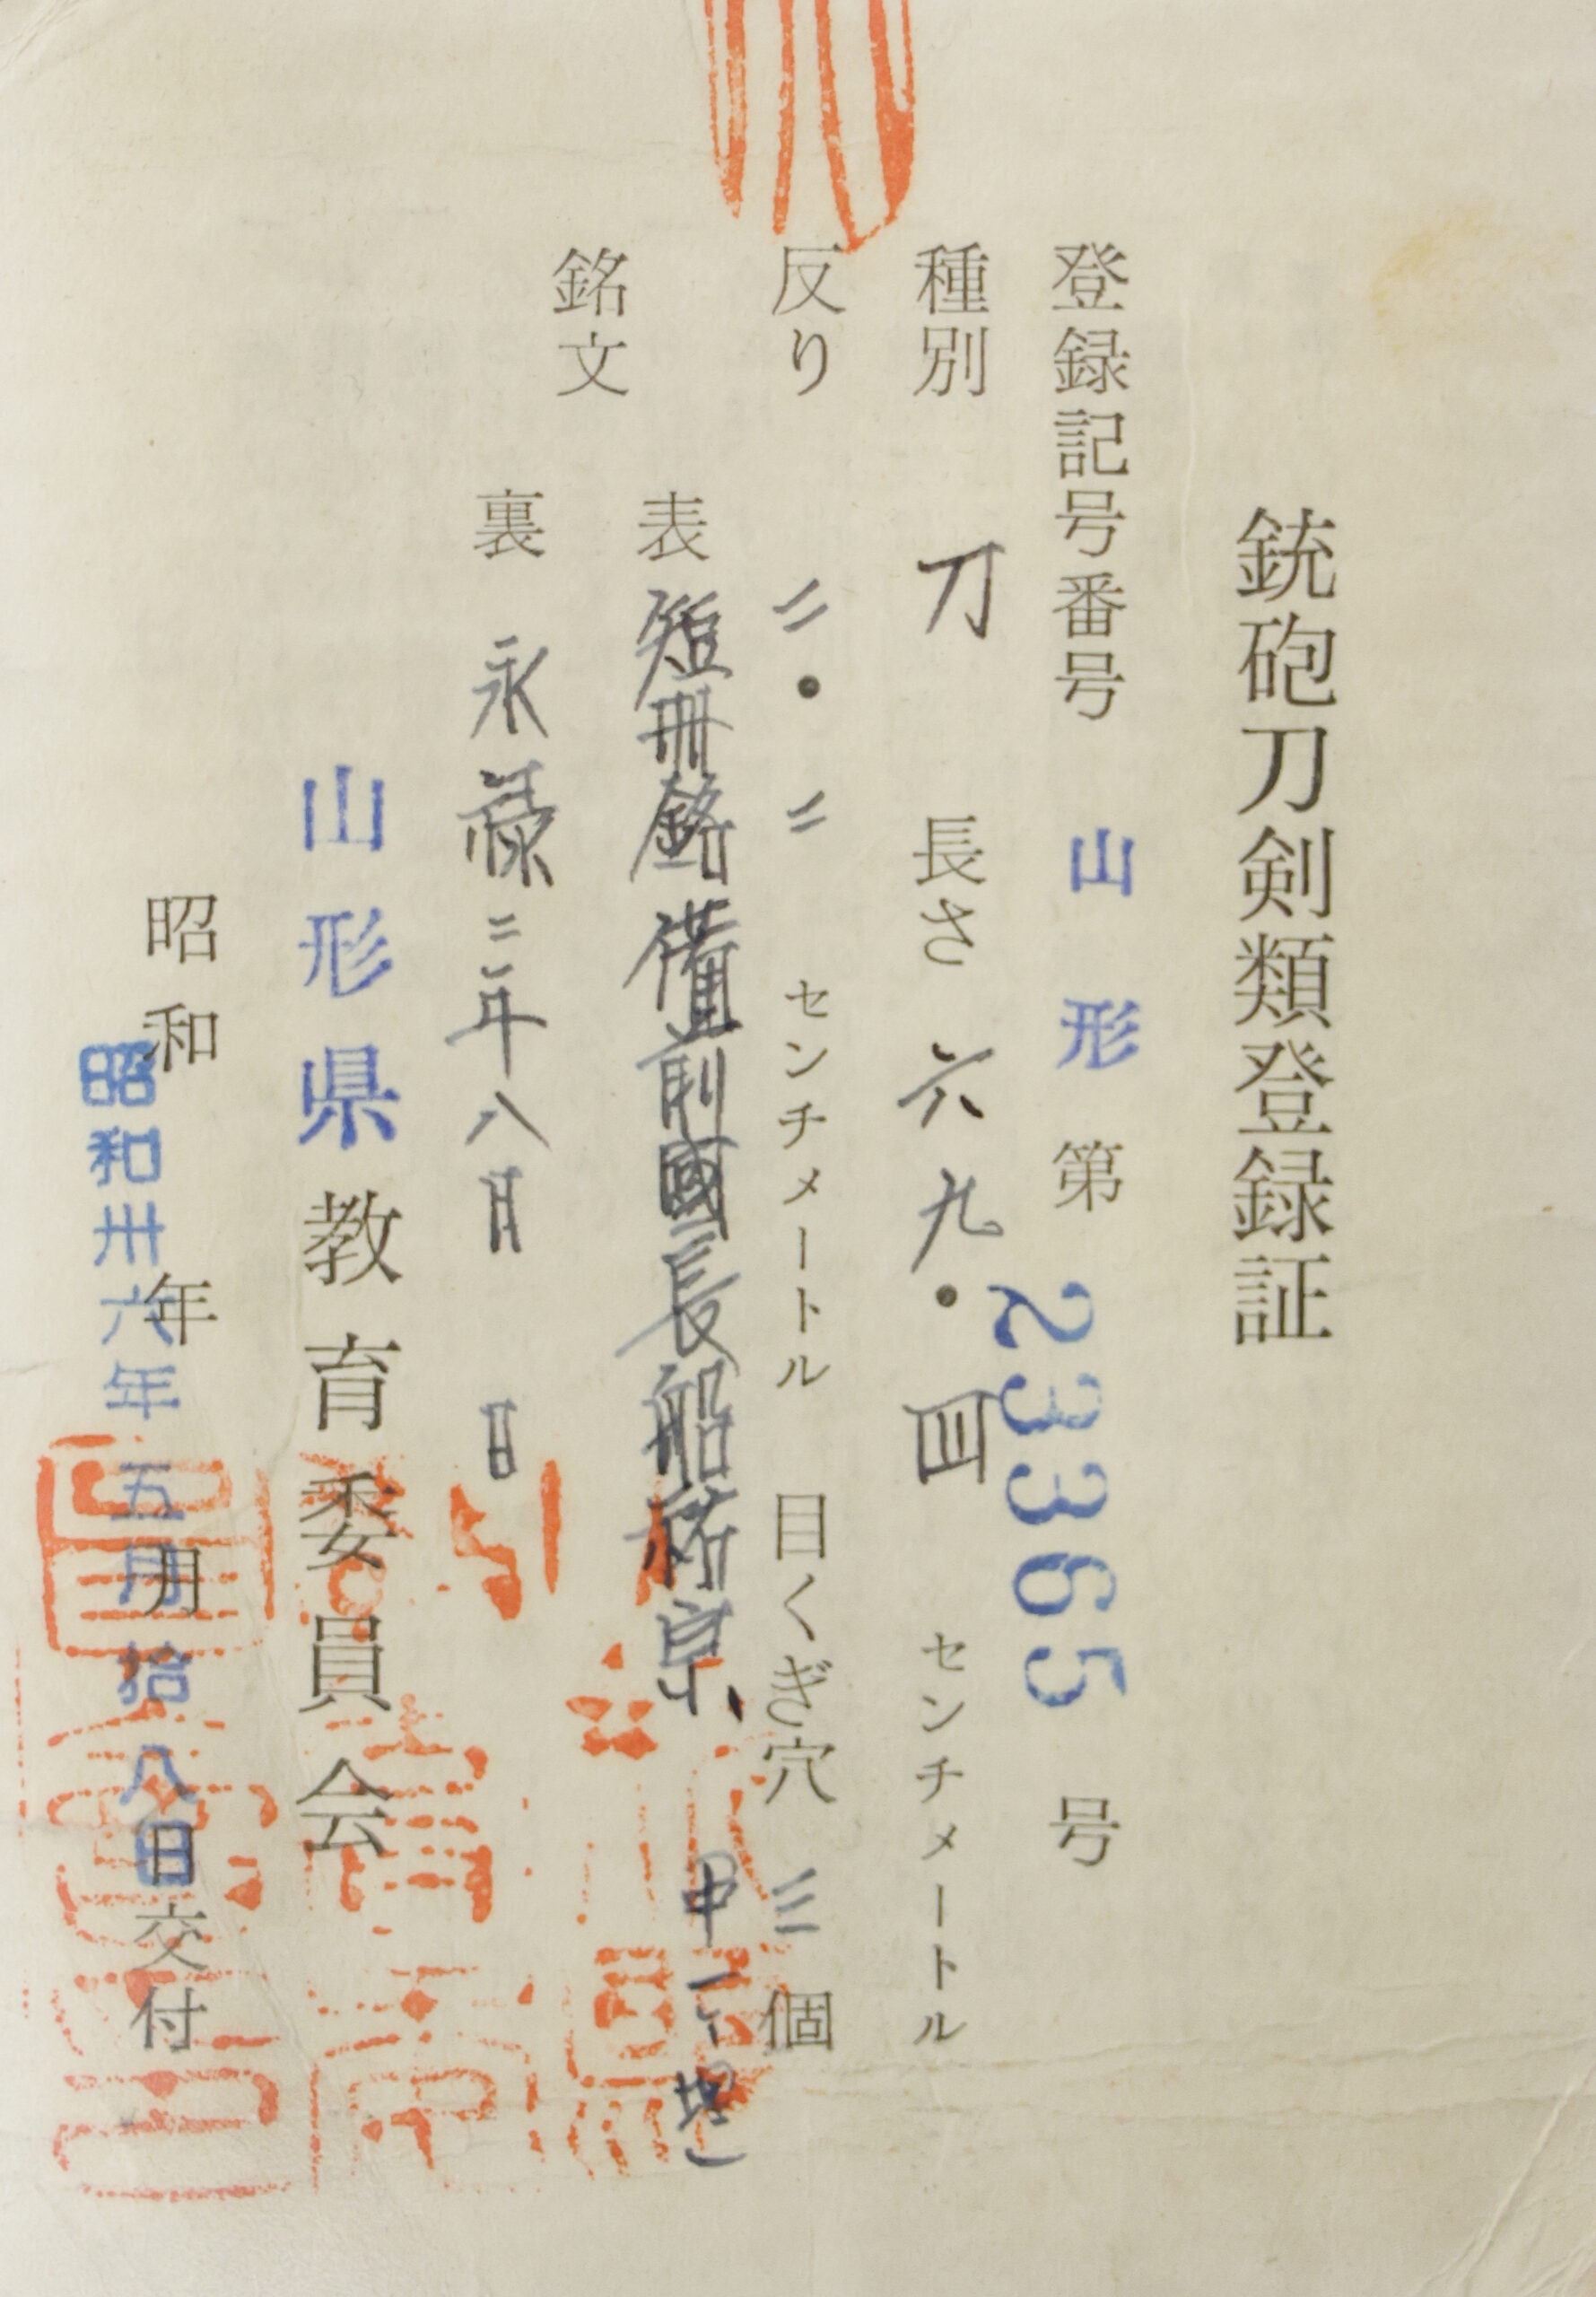 銃砲刀剣類登録証
登録記号番号 山形 第 23365 号
種別 刀 長さ 六九・四 センチメートル
反り 二・二 センチメートル 目くぎ穴 三 個
銘文
表 短冊銘 備前國長船祐宗
裏 永禄三年八月 日
山形県教育委員会
昭和 年 月 日交付
昭和卅六年五月拾八日